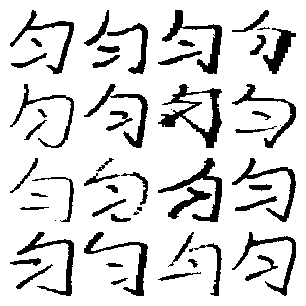 匀匀匀匀
匀匀匀匀
匀匀匀匀
匀匀匀匀